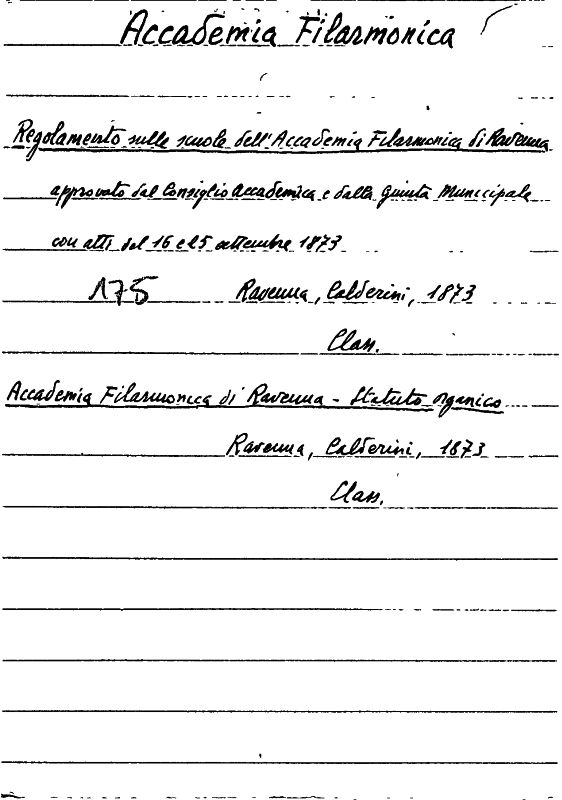 Accademia Filarmonica
Regolamento sulle scuole dell'Accademia Filarmonica di Ravenna
approvato dal Consiglio Accademica e dalla Giunta Municipale
con atti del 16 e 25 settembre 1873
175 Ravenna, Calderini, 1873
Class.
Accademia Filarmonica di Ravenna - Statuto organico
Ravenna, Calderini, 1873
Class.